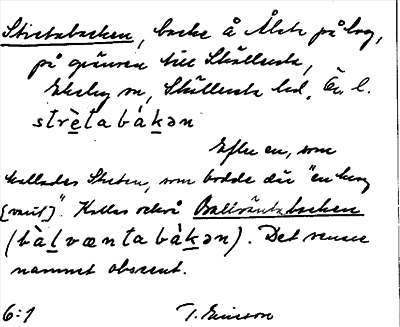 Stretabacken, backe å Ålsta på lag,
på gränsen till Skällersta,
Ekeby sn, Skällersta hd, Ör. l.
strèt̲a bák̲ən
Efter en, som
kallades Streten, som bodde där "en lång
[vart]". Kallas också Ballvänta backen
(bàl̲væn ta bàk̲ən). Det senare
namnet obscent.
6:1 T. Ericsson